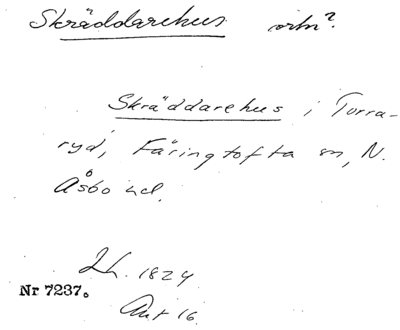 Skräddarehus ortn?
Skräddarehus i Torra-
ryd, Färingtofta sn, N.
Åsbo hd.
Lh. 1824
Nr 7237.
Ant 16.